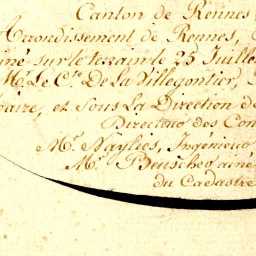 Canton de Rennes
Arrondissement de Rennes,
iné sur le terrain le 25 Juille
Mr. Le Cte. De la Villegontier,
aire, et sous la Direction de
Directeur des Con
Mr. Naylies, Ingénieur
Mr. Beuscher ainé
du Cadastre